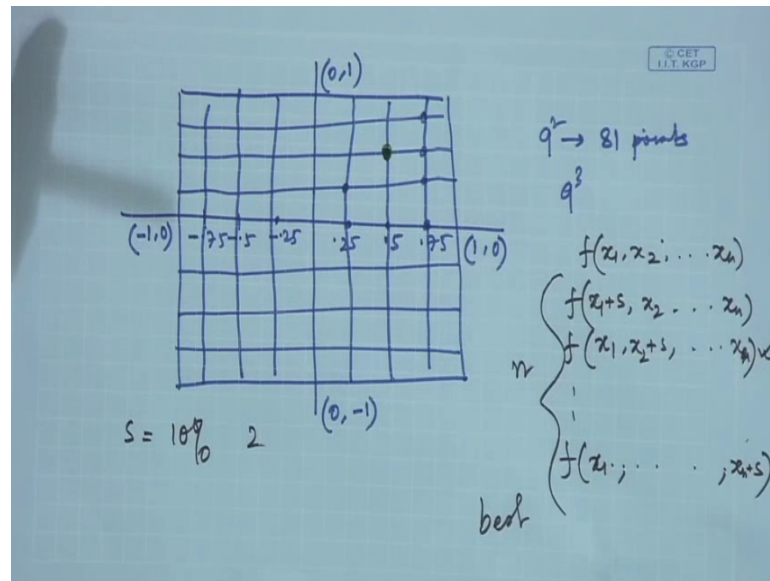 © CET
I.I.T. KGP
(0,1)
9² → 81 points
9³
(-1,0) -.75 -.5 -.25 .25 .5 .75 (1,0)
f(x₁, x₂, ... xₙ)
f(x₁+s, x₂ ... xₙ)
n f(x₁, x₂+s, ... xₙ)
⋮
f(x₁, ..., xₙ+s)
(0,-1)
S = 10% 2
best